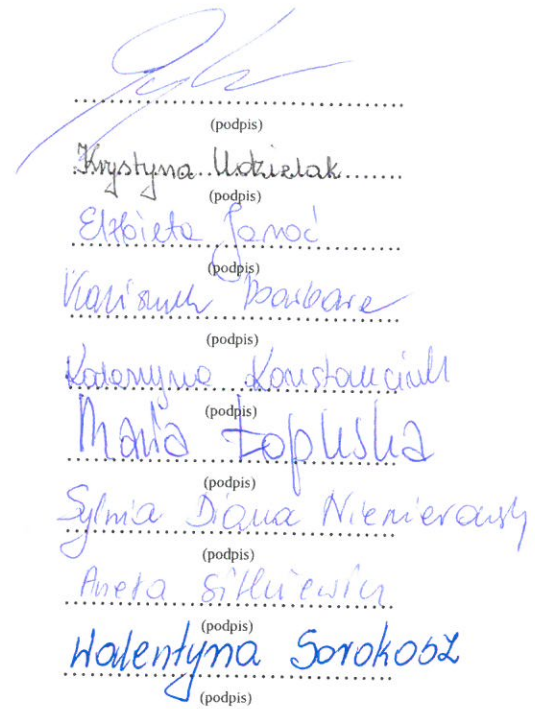 (podpis)
Krystyna Udzielak
(podpis)
Elżbieta Janoć
(podpis)
Barbara
(podpis)
Katarzyna Konstanciuk
(podpis)
Maria Łapuska
(podpis)
Sylwia Diana
(podpis)
Aneta Sitkiewicz
(podpis)
Walentyna Sorokosz
(podpis)